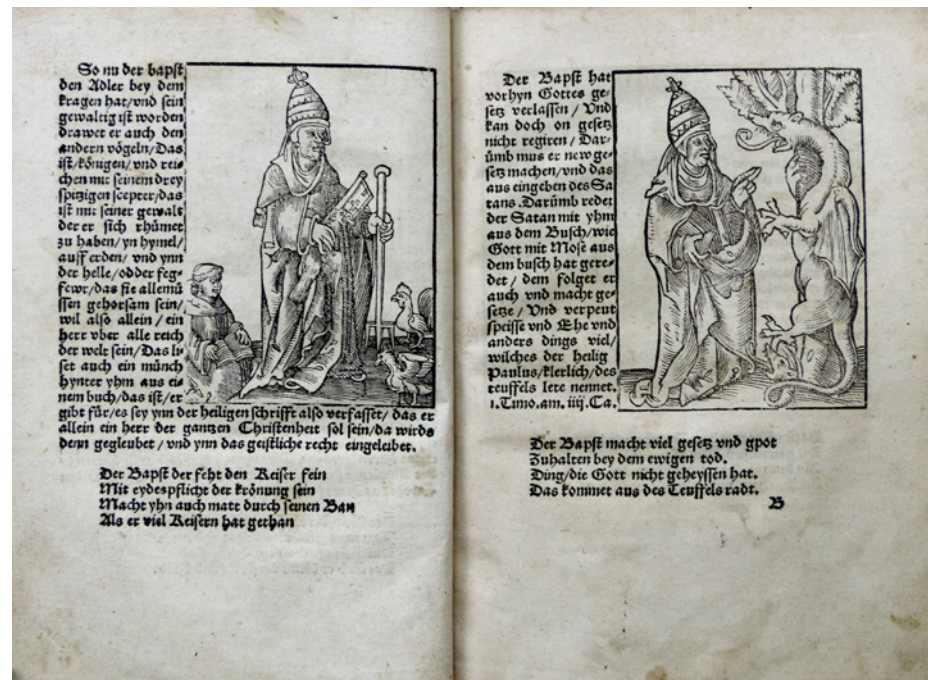 So nu der bapſt
den Adler bey dem
kragen hat/vnd ſein
gewaltig iſt worden
drawet er auch den
andern vögeln/Das
iſt/königen/vnd rei⸗
chen mit ſeinem drey
ſpitzigen ſcepter/das
iſt mit ſeiner gewalt
der er ſich rhümet
zu haben/yn hymel/
auff erden/vnd ynn
der helle/odder feg⸗
fewr/das ſie allemü
ſſen gehorſam ſein/
wil alſo allein/ein
herr vber alle reich
der welt ſein/Das li⸗
ſet auch ein münch
hynter yhm aus ei⸗
nem buch/das iſt/er
gibt für/es ſey ynn der heiligen ſchrifft alſo verfaſſet/das er
allein ein herr der gantzen Chriſtenheit ſol ſein/da wirds
denn gegleubet/vnd ynn das geiſtliche recht eingeleibet.
Der Bapſt der feht den Keiſer fein
Mit eydespflicht der krönung ſein
Macht yhn auch matt durch ſeinen Ban
Als er viel Keiſern hat gethan
Der Bapſt hat
vorhyn Gottes ge⸗
ſetz verlaſſen/Vnd
kan doch on geſetz
nicht regiren/Dar⸗
ümb mus er new ge⸗
ſetz machen/vnd das
aus eingeben des Sa
tans.Darümb redet
der Satan mit yhm
aus dem Buſch/wie
Gott mit Moſe aus
dem buſch hat gere⸗
det/dem folget er
auch vnd macht ge⸗
ſetze/Vnd verpeut
ſpeiſſe vnd Ehe vnd
anders dings viel/
wilches der heilig
Paulus/klerlich/des
teuffels lere nennet.
1.Timo.am.iiij.Ca.
Der Bapſt macht viel geſetz vnd gpot
Zuhalten bey dem ewigen tod.
Ding/die Gott nicht geheyſſen hat.
Das kommet aus des Teuffels radt.
B